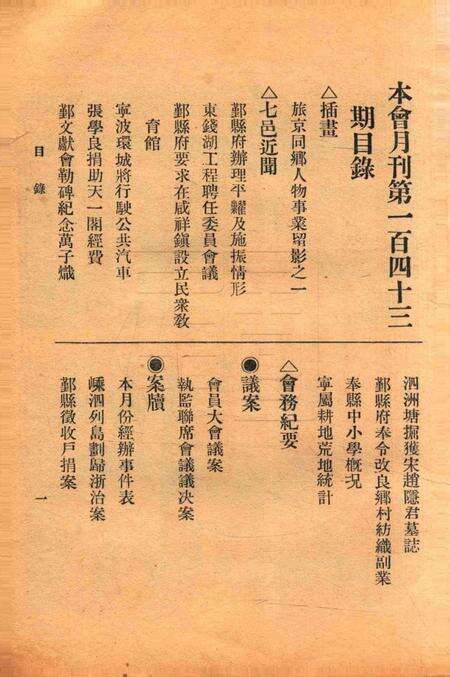 本會月刊第一百四十三
期目錄
△插畫
旅京同鄉人物事業留影之一
△七邑近聞
鄞縣府辦理平糶及施振情形
東錢湖工程聘任委員會議
鄞縣府要求在咸祥鎮設立民衆敎
育館
寧波環城將行駛公共汽車
張學良捐助天一閣經費
鄞文獻會勒碑紀念萬子熾
泗洲塘掘獲宋趙隱君墓誌
鄞縣府奉令改良鄉村紡織副業
奉縣中小學概況
寧屬耕地荒地統計
△會務紀要
●議案
會員大會議案
執監聯席會議議決案
●案牘
本月份經辦事件表
嵊泗列島劃歸浙治案
鄞縣徵收戶捐案
目錄
一